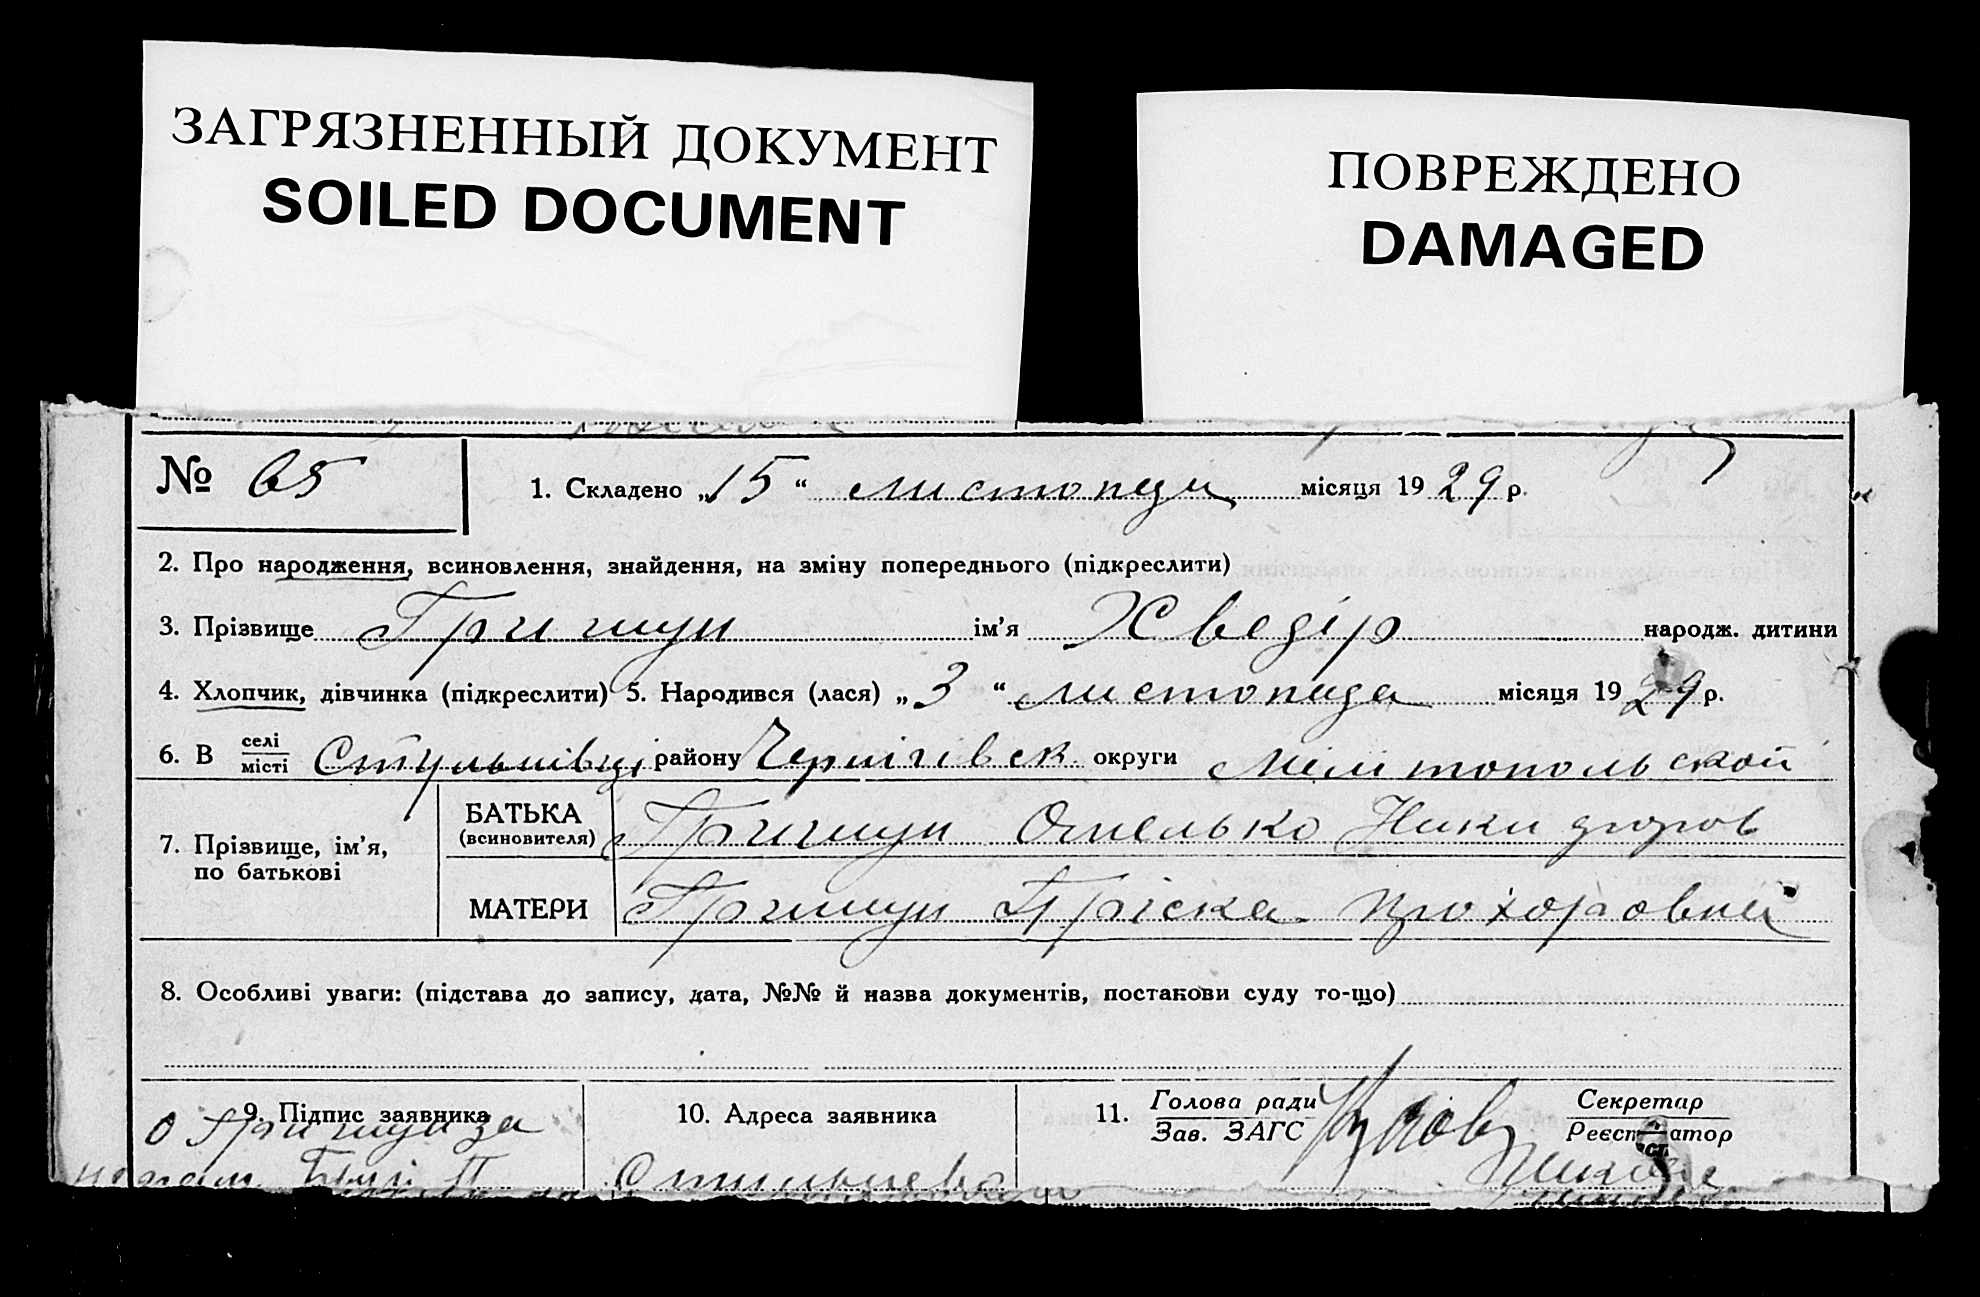 ЗАГРЯЗНЕННЫЙ ДОКУМЕНТ
SOILED DOCUMENT
ПОВРЕЖДЕНО
DAMAGED
№ 65
1. Складено „15“ листопада місяця 1929 р.
2. Про народження, всиновлення, знайдення, на зміну попереднього (підкреслити)
3. Прізвище Гришун ім’я Хведір народж. дитини
4. Хлопчик, дівчинка (підкреслити) 5. Народився (лася) „3“ листопада місяця 1929 р.
6. В селі місті району Чернігівск округи Мелітопольской
7. Прізвище, ім’я, по батькові
БАТЬКА (всиновителя) Гришун Омелько Никифоров
МАТЕРИ Гришун Пріска Прохоровна
8. Особливі уваги: (підстава до запису, дата, №№ й назва документів, постанови суду то-що)
9. Підпис заявника
10. Адреса заявника
11. Голова ради Зав. ЗАГС
Секретар Реєстратор
О Гришун за